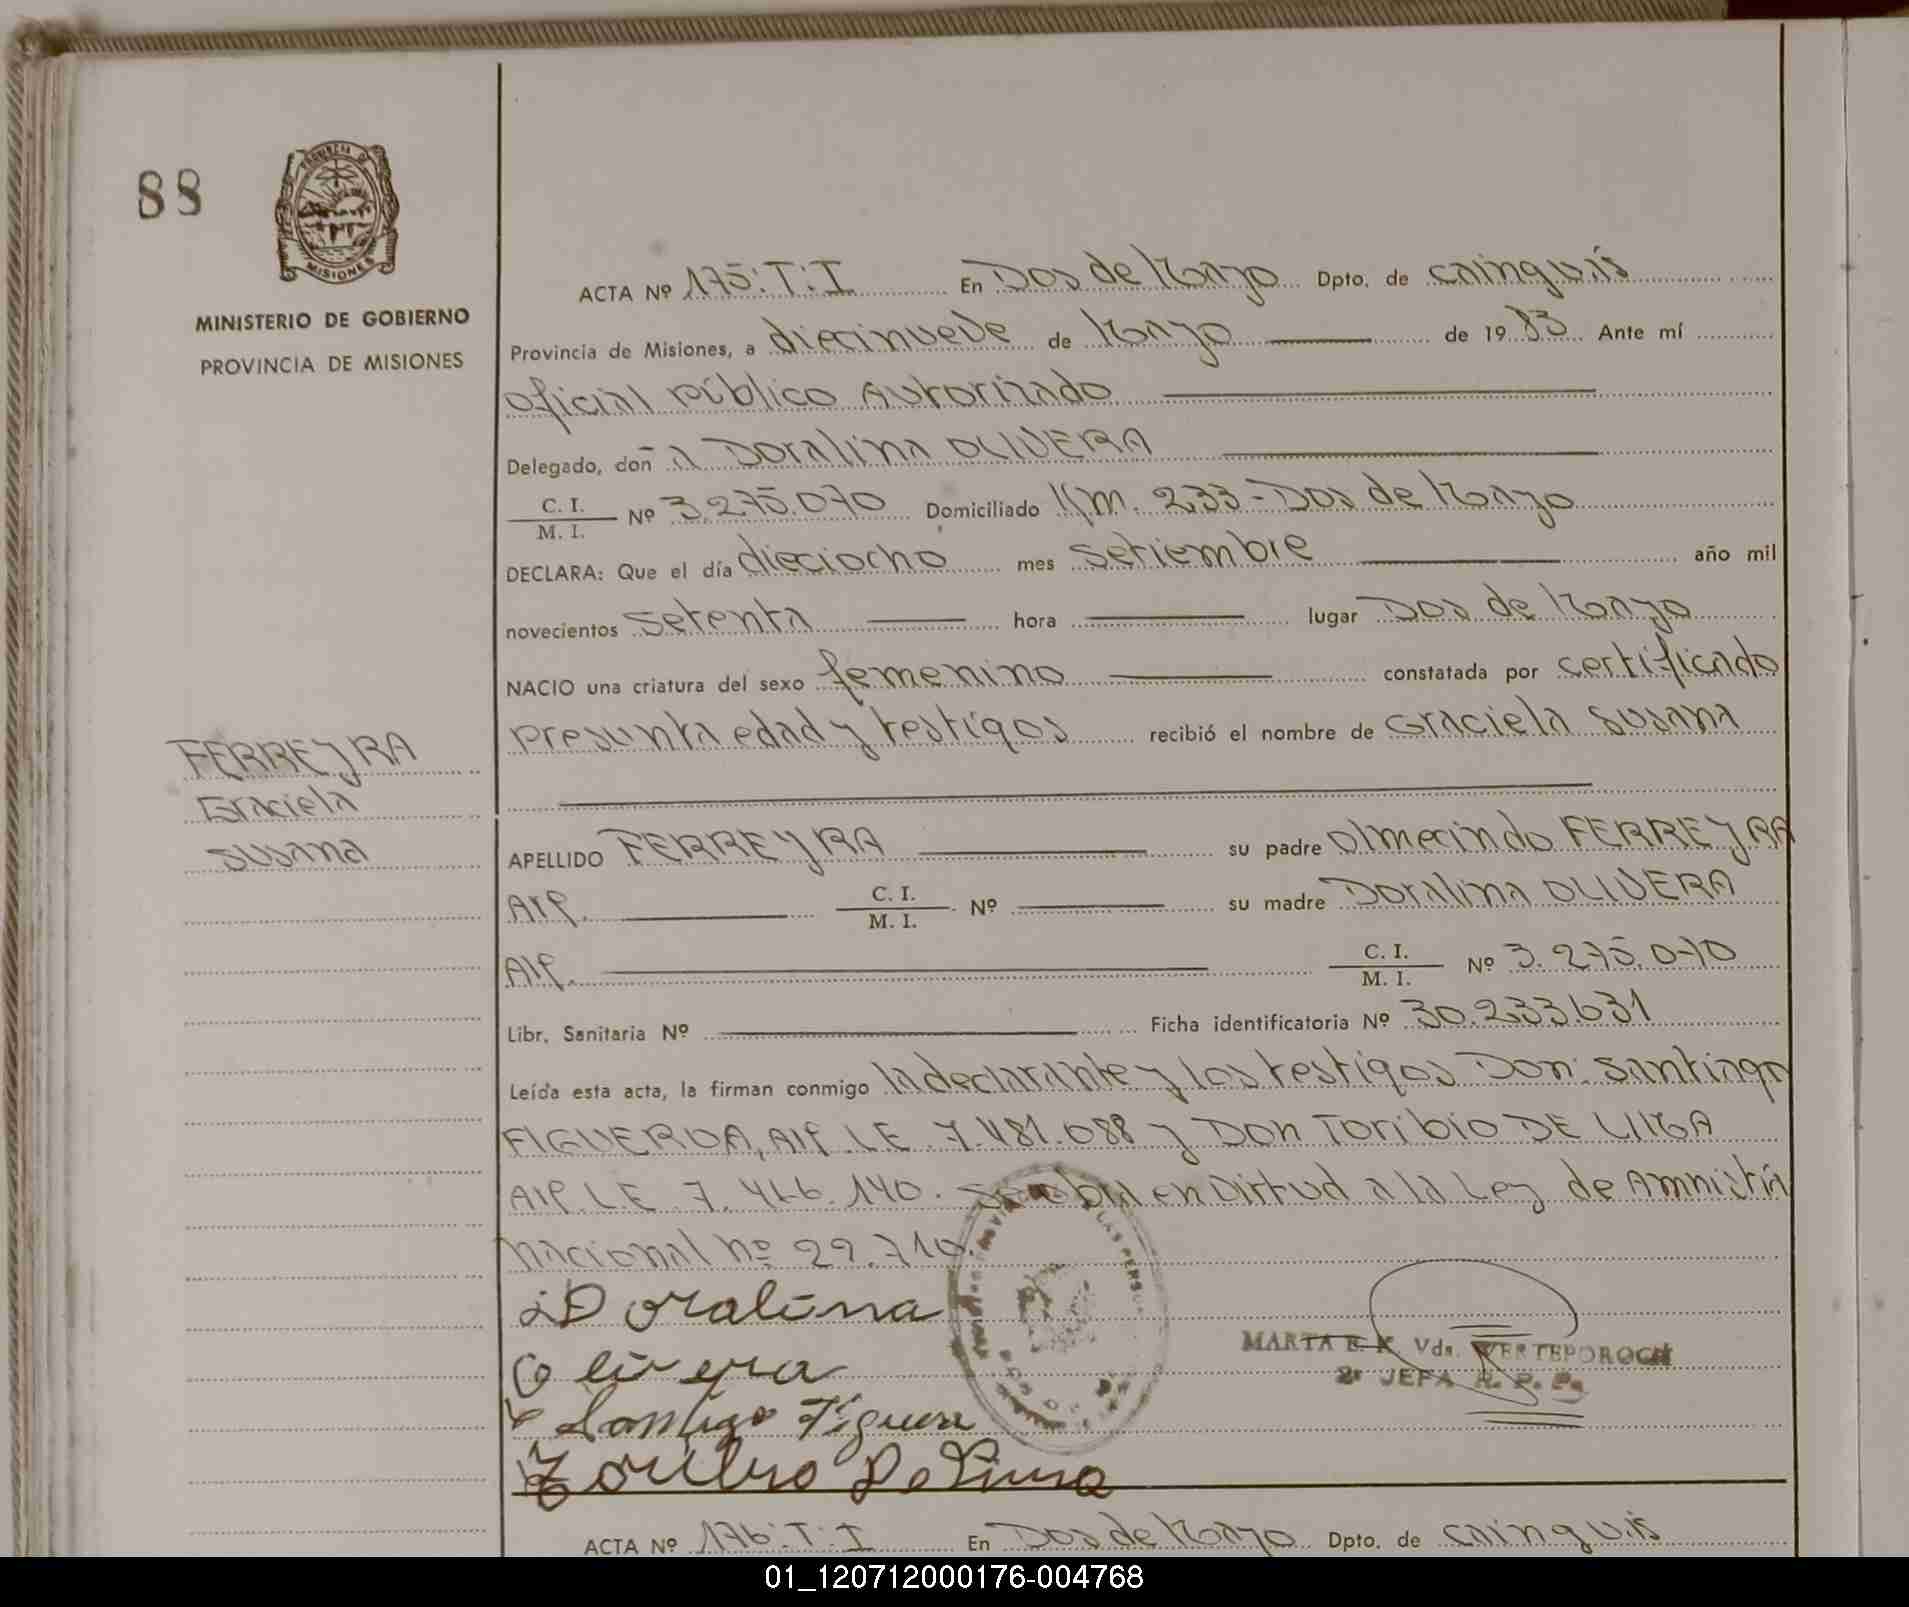 88
PROVINCIA DE
MISIONES
MINISTERIO DE GOBIERNO
PROVINCIA DE MISIONES
ACTA Nº 175.T.I En Dos de Mayo Dpto. de Cainguás
Provincia de Misiones, a diecinueve de Mayo de 1983. Ante mí
Oficial Público Autorizado
Delegado, don a Doralina OLIVERA
C. I.
M. I. Nº 3.275.070 Domiciliado Km. 233-Dos de Mayo
DECLARA: Que el día dieciocho mes Setiembre año mil
novecientos Setenta hora lugar Dos de Mayo
NACIO una criatura del sexo femenino constatada por certificado
presunta edad y testigos recibió el nombre de Graciela Susana
FERREYRA
Graciela
Susana
APELLIDO FERREYRA su padre Olmecindo FERREYRA
Arg. C. I.
M. I. Nº su madre Doralina OLIVERA
Arg. C. I.
M. I. Nº 3.275.070
Libr. Sanitaria Nº Ficha identificatoria Nº 30.233.631
Leída esta acta, la firman conmigo la declarante y los testigos Don: Santiago
FIGUEROA, Arg. L.E. 7.481.088 y Don Toribio DE LIMA
Arg. L.E. 7. 466.140. en Virtud a la Ley de Amnistía
Nacional nº 22.710.
Doralina
Olivera
Santiago Figuera
Toribio De Lima
MARTA E. K. Vda. WERTEPOROCH
2º JEFA R. P. P.
ACTA Nº 176.T.I En Dos de Mayo Dpto. de Cainguás
01_120712000176-004768